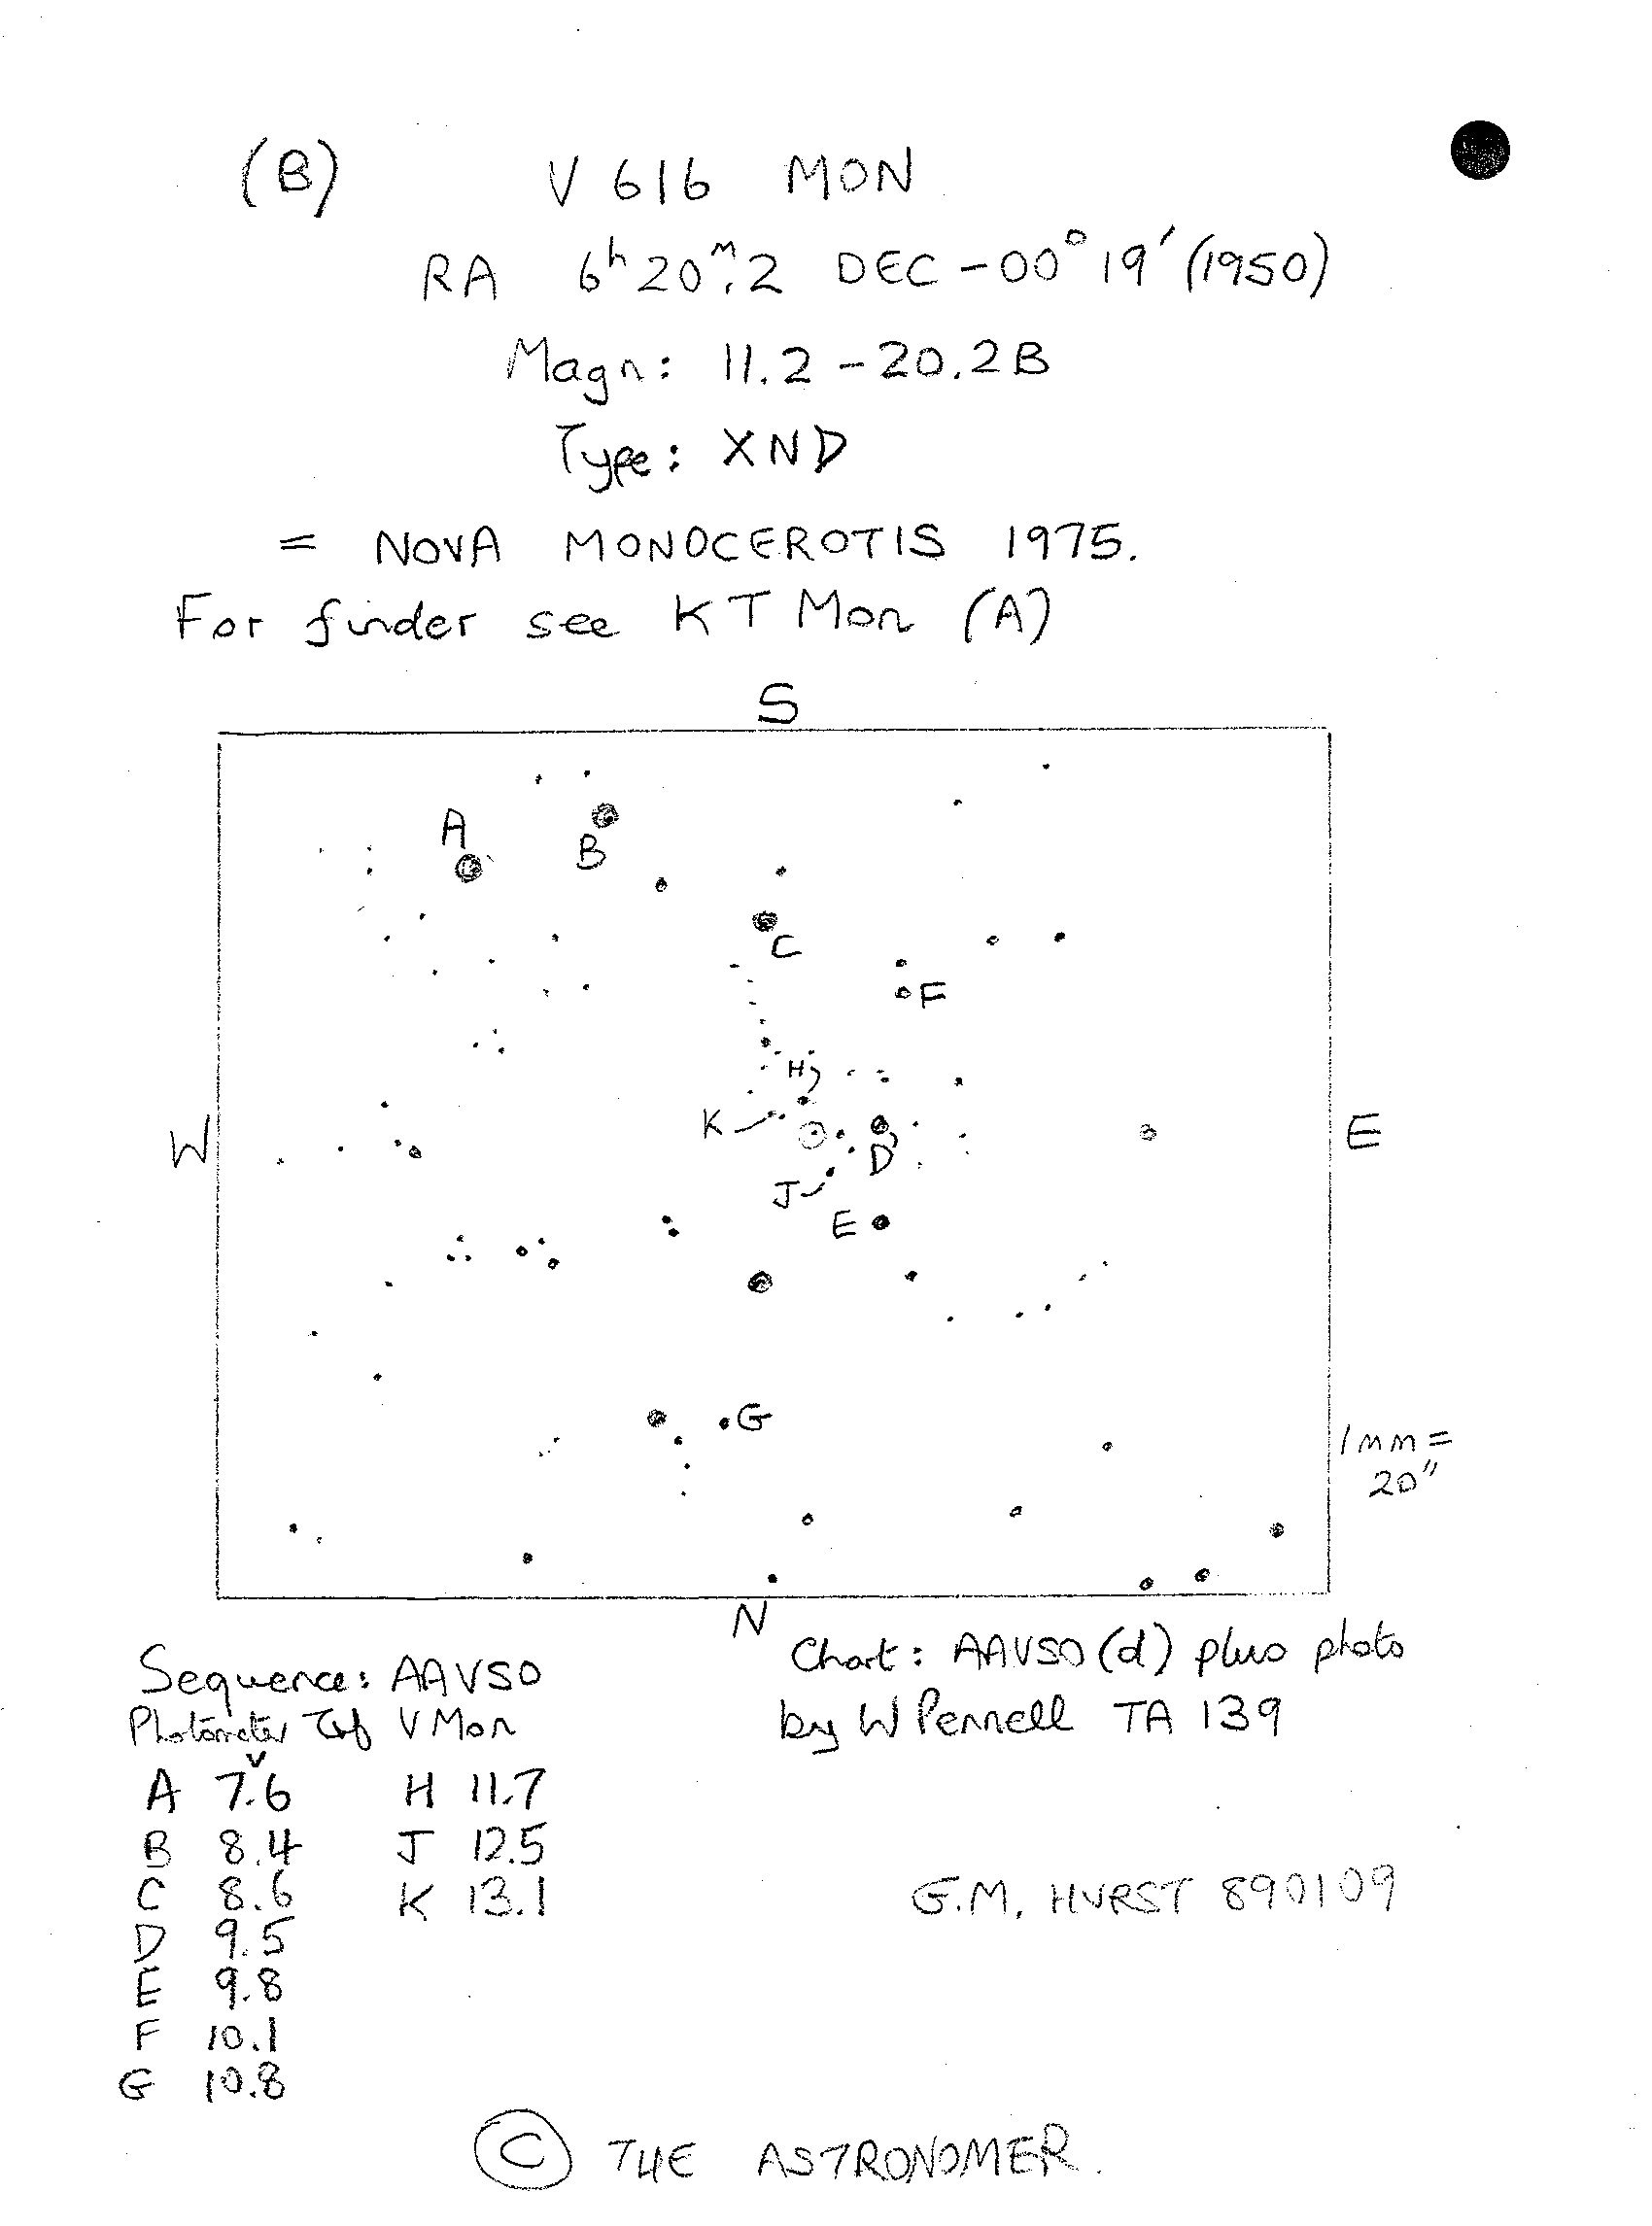 (B) V 616 MON
RA 6ʰ 20ᵐ.2 DEC -00° 19′ (1950)
Magn: 11.2 - 20.2B
Type: XND
= NOVA MONOCEROTIS 1975.
For finder see KT Mon (A)
S
A
B
C
F
H
K
W
E
D
J
E
G
1mm =
20″
N
Chart: AAVSO (d) plus photo
by W Pennell TA 139
Sequence: AAVSO
V Mon
v
A 7.6 H 11.7
B 8.4 J 12.5
C 8.6 K 13.1
D 9.5
E 9.8
F 10.1
G 10.8
G.M. HURST 890109
© THE ASTRONOMER.